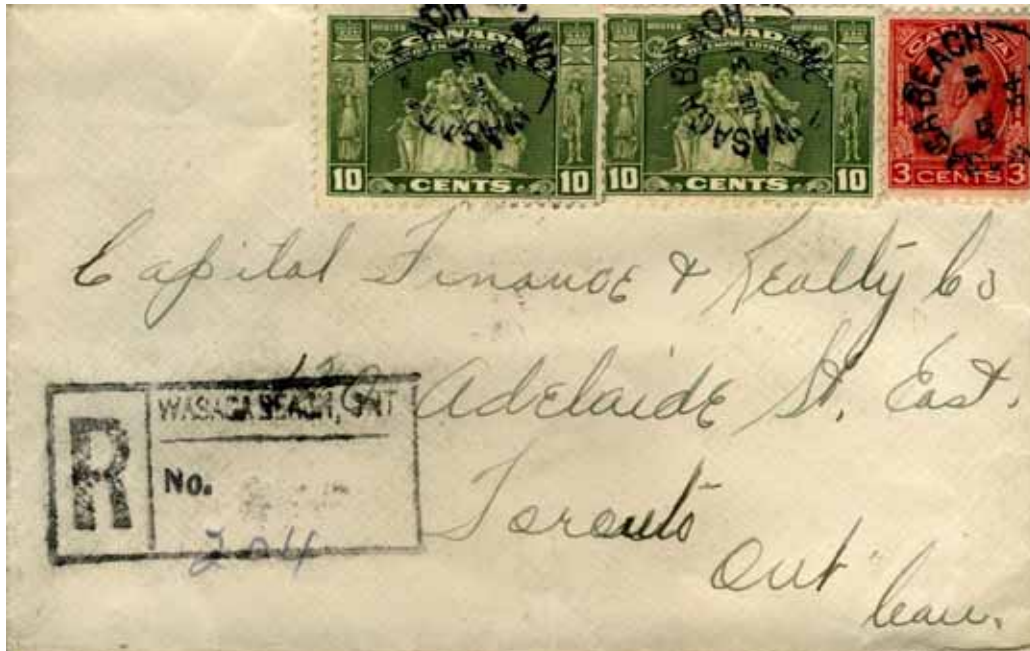 CANADA
10 CENTS 10
CANADA
10 CENTS 10
CANADA
3 CENTS 3
WASAGA BEACH
WASAGA BEACH
SAGA BEACH
Capital Finance & Realty Co
Adelaide St. East.
Toronto
Ont
Can.
R
WASAGA BEACH, ONT
No.
204